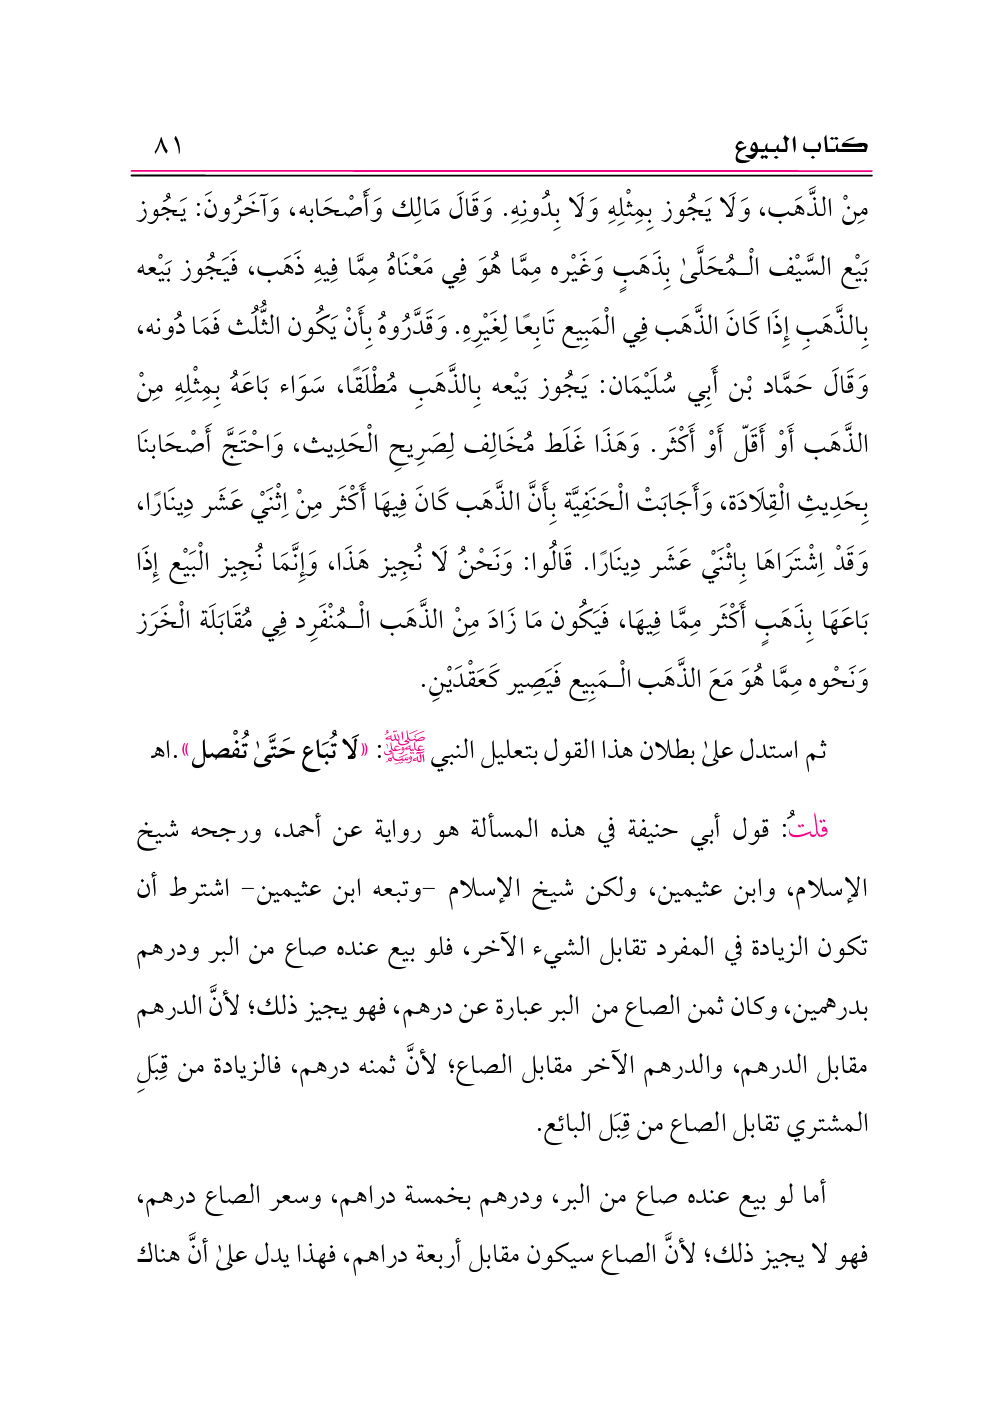 كتاب البيوع ٨١
مِنْ الذَّهَب، وَلَا يَجُوز بِمِثْلِهِ وَلَا بِدُونِهِ. وَقَالَ مَالِك وَأَصْحَابه، وَآخَرُونَ: يَجُوز
بَيْع السَّيْف الْـمُحَلَّىٰ بِذَهَبٍ وَغَيْره مِمَّا هُوَ فِي مَعْنَاهُ مِمَّا فِيهِ ذَهَب، فَيَجُوز بَيْعه
بِالذَّهَبِ إِذَا كَانَ الذَّهَب فِي الْمَبِيع تَابِعًا لِغَيْرِهِ. وَقَدَّرُوهُ بِأَنْ يَكُون الثُّلُث فَمَا دُونه،
وَقَالَ حَمَّاد بْن أَبِي سُلَيْمَان: يَجُوز بَيْعه بِالذَّهَبِ مُطْلَقًا، سَوَاء بَاعَهُ بِمِثْلِهِ مِنْ
الذَّهَب أَوْ أَقَلّ أَوْ أَكْثَر. وَهَذَا غَلَط مُخَالِف لِصَرِيحِ الْحَدِيث، وَاحْتَجَّ أَصْحَابنَا
بِحَدِيثِ الْقِلَادَة، وَأَجَابَتْ الْحَنَفِيَّة بِأَنَّ الذَّهَب كَانَ فِيهَا أَكْثَر مِنْ اِثْنَيْ عَشَر دِينَارًا،
وَقَدْ اِشْتَرَاهَا بِاثْنَيْ عَشَر دِينَارًا. قَالُوا: وَنَحْنُ لَا نُجِيز هَذَا، وَإِنَّمَا نُجِيز الْبَيْع إِذَا
بَاعَهَا بِذَهَبٍ أَكْثَر مِمَّا فِيهَا، فَيَكُون مَا زَادَ مِنْ الذَّهَب الْـمُنْفَرِد فِي مُقَابَلَة الْخَرَز
وَنَحْوه مِمَّا هُوَ مَعَ الذَّهَب الْـمَبِيع فَيَصِير كَعَقْدَيْنِ.
ثم استدل علىٰ بطلان هذا القول بتعليل النبي ﷺ: «لَا تُبَاع حَتَّىٰ تُفْصل».اهـ
قلتُ: قول أبي حنيفة في هذه المسألة هو رواية عن أحمد، ورجحه شيخ
الإسلام، وابن عثيمين، ولكن شيخ الإسلام -وتبعه ابن عثيمين- اشترط أن
تكون الزيادة في المفرد تقابل الشيء الآخر، فلو بيع عنده صاع من البر ودرهم
بدرهمين، وكان ثمن الصاع من البر عبارة عن درهم، فهو يجيز ذلك؛ لأنَّ الدرهم
مقابل الدرهم، والدرهم الآخر مقابل الصاع؛ لأنَّ ثمنه درهم، فالزيادة من قِبَلِ
المشتري تقابل الصاع من قِبَل البائع.
أما لو بيع عنده صاع من البر، ودرهم بخمسة دراهم، وسعر الصاع درهم،
فهو لا يجيز ذلك؛ لأنَّ الصاع سيكون مقابل أربعة دراهم، فهذا يدل علىٰ أنَّ هناك